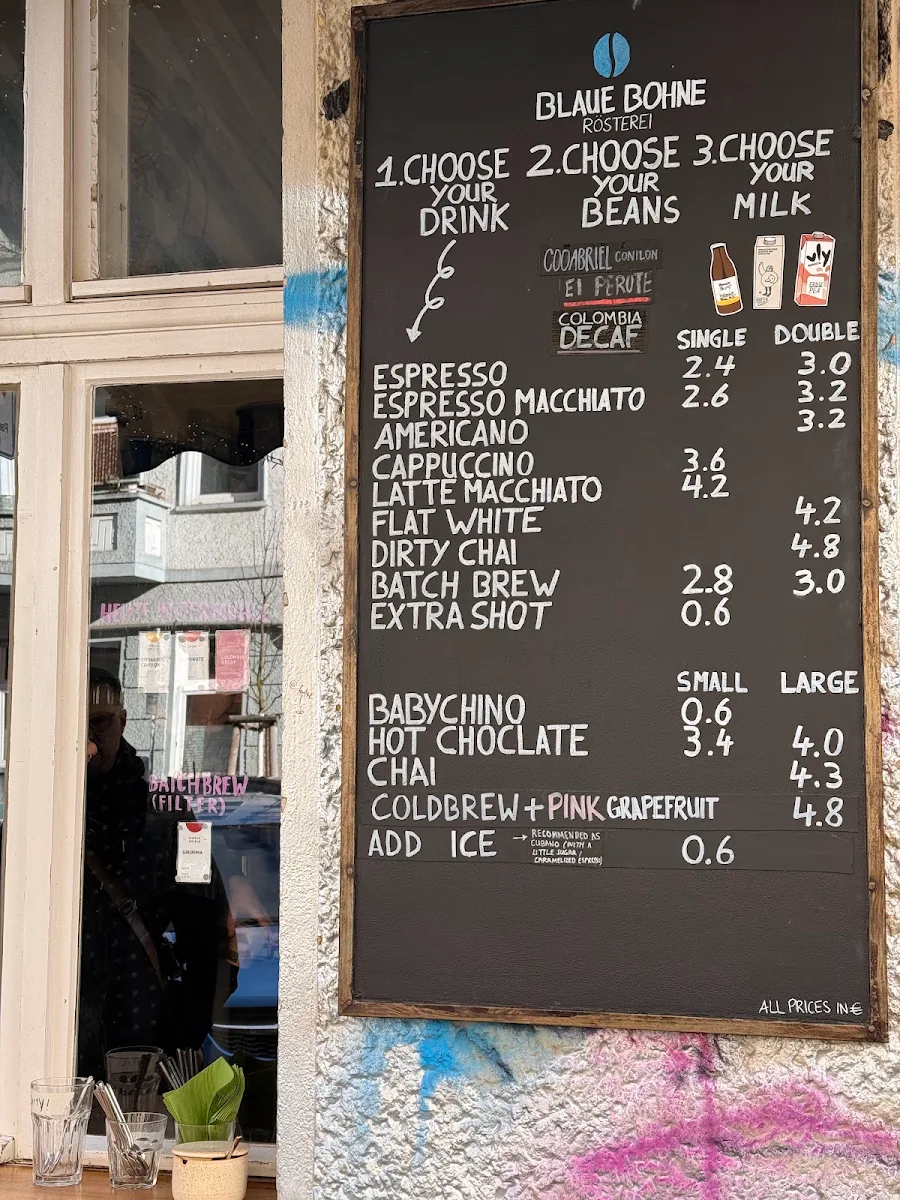 BLAUE BOHNE
RÖSTEREI
1. CHOOSE YOUR DRINK
2. CHOOSE YOUR BEANS
3. CHOOSE YOUR MILK
GODABRIEL CONILON
EL PERUTE
COLOMBIA
DECAF
SINGLE DOUBLE
ESPRESSO 2.4 3.0
ESPRESSO MACCHIATO 2.6 3.2
AMERICANO 3.2
CAPPUCCINO 3.6
LATTE MACCHIATO 4.2
FLAT WHITE 4.2
DIRTY CHAI 4.8
BATCH BREW 2.8 3.0
EXTRA SHOT 0.6
SMALL LARGE
BABYCHINO 0.6
HOT CHOCLATE 3.4 4.0
CHAI 4.3
COLDBREW + PINK GRAPEFRUIT 4.8
ADD ICE → RECOMMENDED AS
CUBANO (WITH A
LITTLE SUGAR /
CARAMELIZED ESPRESSO)
0.6
ALL PRICES IN €
HEUTE
BATCHBREW
(FILTER)